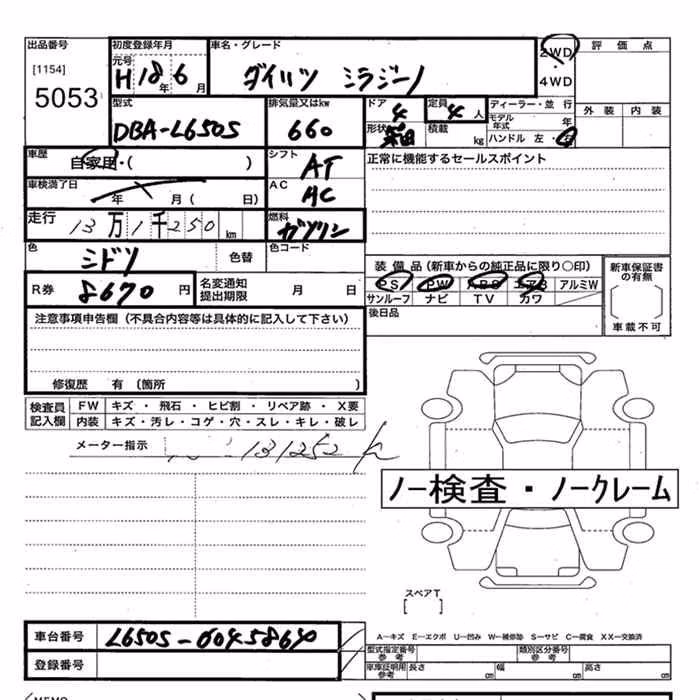 出品番号 初度登録年月 車名・グレード 2WD 評価点
[1154] 元号 ・
5053 H 18年 6月 ダイハツ ミラジーノ 4WD
型式 排気量又はkw ドア 定員 ディーラー・並行 外装 内装
DBA-L650S 660 4 4人 モデル年式 年
形状 積載 kg ハンドル 左・右
車歴 自家用・( ) シフト AT 正常に機能するセールスポイント
車検満了日 年 月 ( 日) AC AC
走行 13万1千250km 燃料 ガソリン
色 ミドリ 色替 色コード
装備品(新車からの純正品に限り〇印) 新車保証書の有無
R券 8670円 名変通知提出期限 月 日 PS PW ABS エアB アルミW
サンルーフ ナビ TV カワ 車載不可
注意事項申告欄(不具合内容等は具体的に記入して下さい) 後日品
修復歴 有〔箇所 〕
検査員記入欄 FW キズ・飛石・ヒビ割・リペア跡・X要
内装 キズ・汚レ・コゲ・穴・スレ・キレ・破レ
メーター指示 131252 k
ノー検査・ノークレーム
スペアT
[ ]
車台番号 L650S-00458640 A―キズ E―エクボ U―凹み W―補修跡 S―サビ C―腐食 XX―交換済
型式指定番号 参考 類別区分番号 参考
登録番号 車庫証明用 参考 長さ cm 幅 cm 高さ cm
MEMO